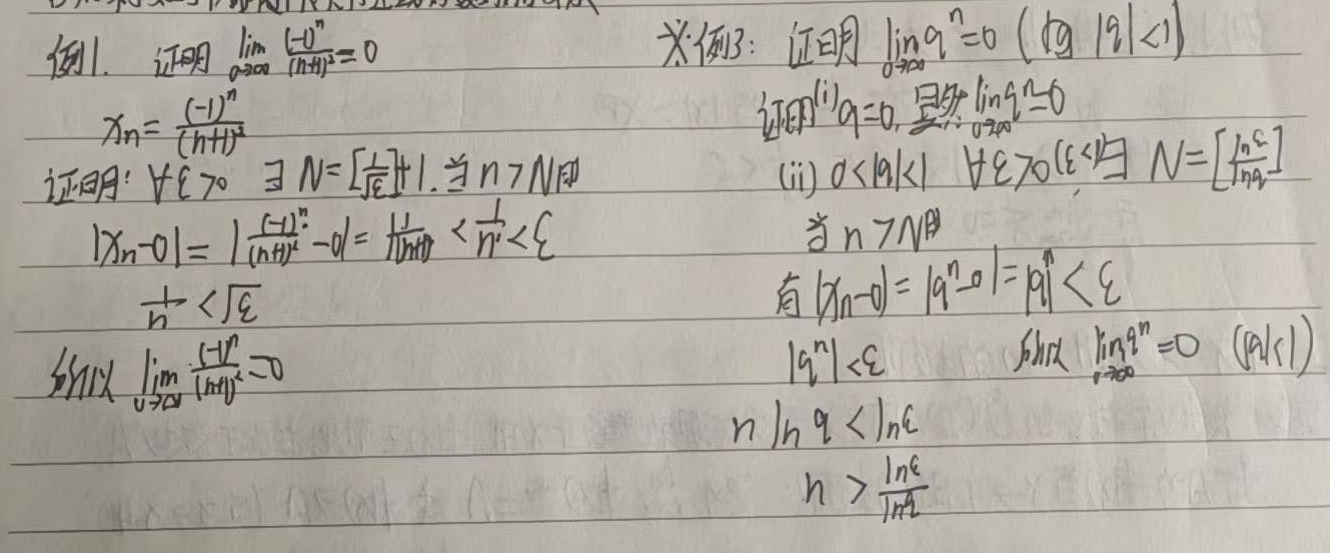 例1. 证明 lim_{n→∞} (-1)^n/(n+1)^2 = 0
x_n = (-1)^n/(n+1)^2
证明: ∀ε>0 ∃N=[1/√ε]+1. 当n>N时
|x_n-0| = |(-1)^n/(n+1)^2 - 0| = 1/(n+1)^2 < 1/n < ε
1/n < √ε
所以 lim_{n→∞} (-1)^n/(n+1)^2 = 0
※例3: 证明 lim_{n→∞} q^n = 0 (|q|<1)
证明(i) q=0, 显然 lim_{n→∞} q^n = 0
(ii) 0<|q|<1 ∀ε>0(ε<1) ∃N=[lnε/lnq]
当n>N时
有|x_n-0| = |q^n-0| = |q|^n < ε
|q^n|<ε
n ln q < lnε
n > lnε/lnq
所以 lim_{n→∞} q^n = 0 (|q|<1)